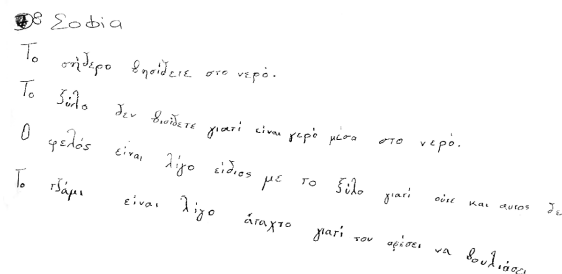 8 Σοφία
Το σήδερο βησίδετε στο νερό.
Το ξύλο δεν βισίδετε γιατί είναι γερό μέσα στο νερό.
Ο φελός είναι λίγο είδιος με το ξύλο γιατί ούτε και αυτος δε
Το τζάμι είναι λίγο άταχτο γιατί του αρέσει να βουλιάσει